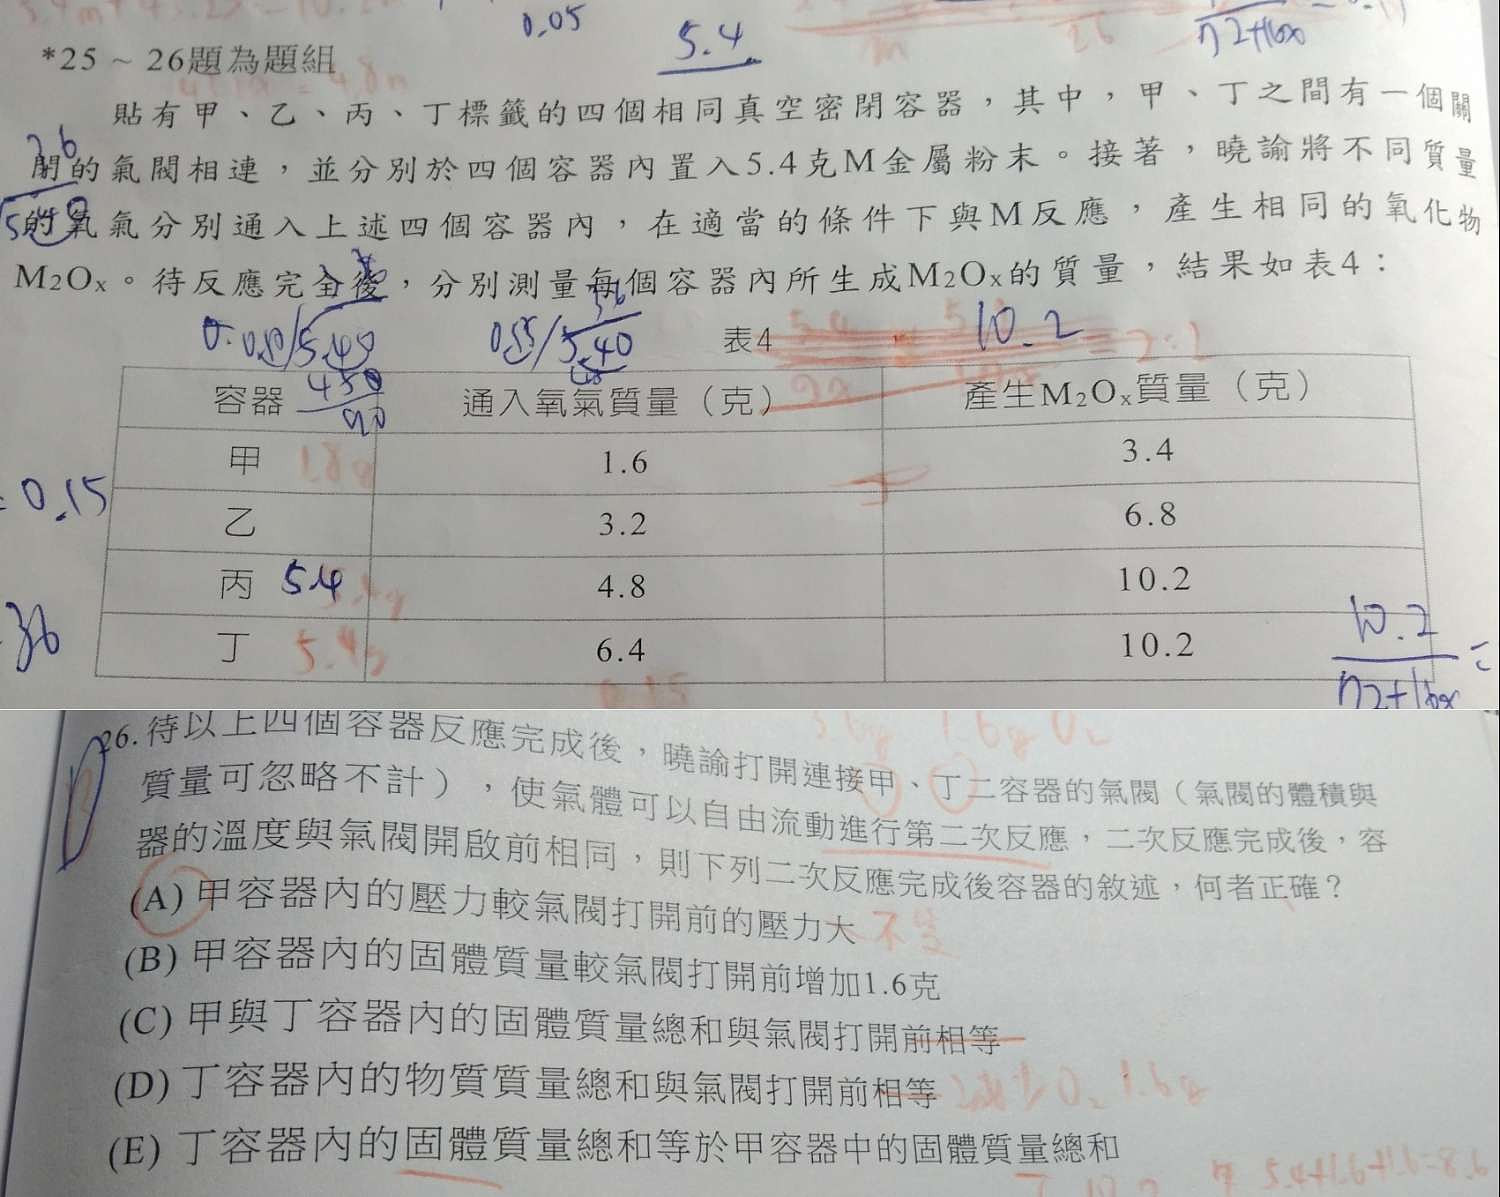 0.05
5.4
*25 ~ 26題為題組
貼有甲、乙、丙、丁標籤的四個相同真空密閉容器，其中，甲、丁之間有一個關
閉的氣閥相連，並分別於四個容器內置入5.4克M金屬粉末。接著，曉諭將不同質量
的氧氣分別通入上述四個容器內，在適當的條件下與M反應，產生相同的氧化物
M₂Oₓ。待反應完全後，分別測量每個容器內所生成M₂Oₓ的質量，結果如表4：
10.2
表4
容器 通入氧氣質量（克） 產生M₂Oₓ質量（克）
甲 1.8g 1.6 3.4
0.15
乙 3.2 6.8
丙 5.4 4.8 10.2
36
丁 5.4g 6.4 10.2
10.2
26.待以上四個容器反應完成後，曉諭打開連接甲、丁二容器的氣閥（氣閥的體積與
質量可忽略不計），使氣體可以自由流動進行第二次反應，二次反應完成後，容
器的溫度與氣閥開啟前相同，則下列二次反應完成後容器的敘述，何者正確？
(A) 甲容器內的壓力較氣閥打開前的壓力大
(B) 甲容器內的固體質量較氣閥打開前增加1.6克
(C) 甲與丁容器內的固體質量總和與氣閥打開前相等
(D) 丁容器內的物質質量總和與氣閥打開前相等 減少O₂ 1.6g
(E) 丁容器內的固體質量總和等於甲容器中的固體質量總和
甲 5.4+1.6+1.6=8.6